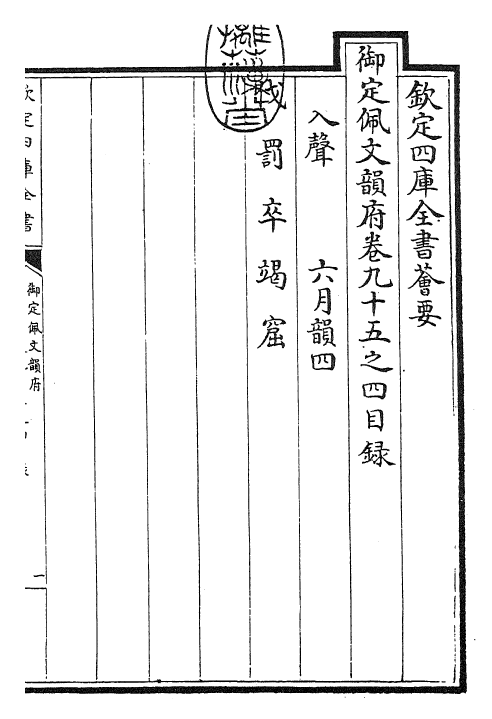 欽定四庫全書薈要
御定佩文韻府卷九十五之四目録
入聲　六月韻四
伐罰卒竭窟
欽定四庫全書
御定佩文韻府
一